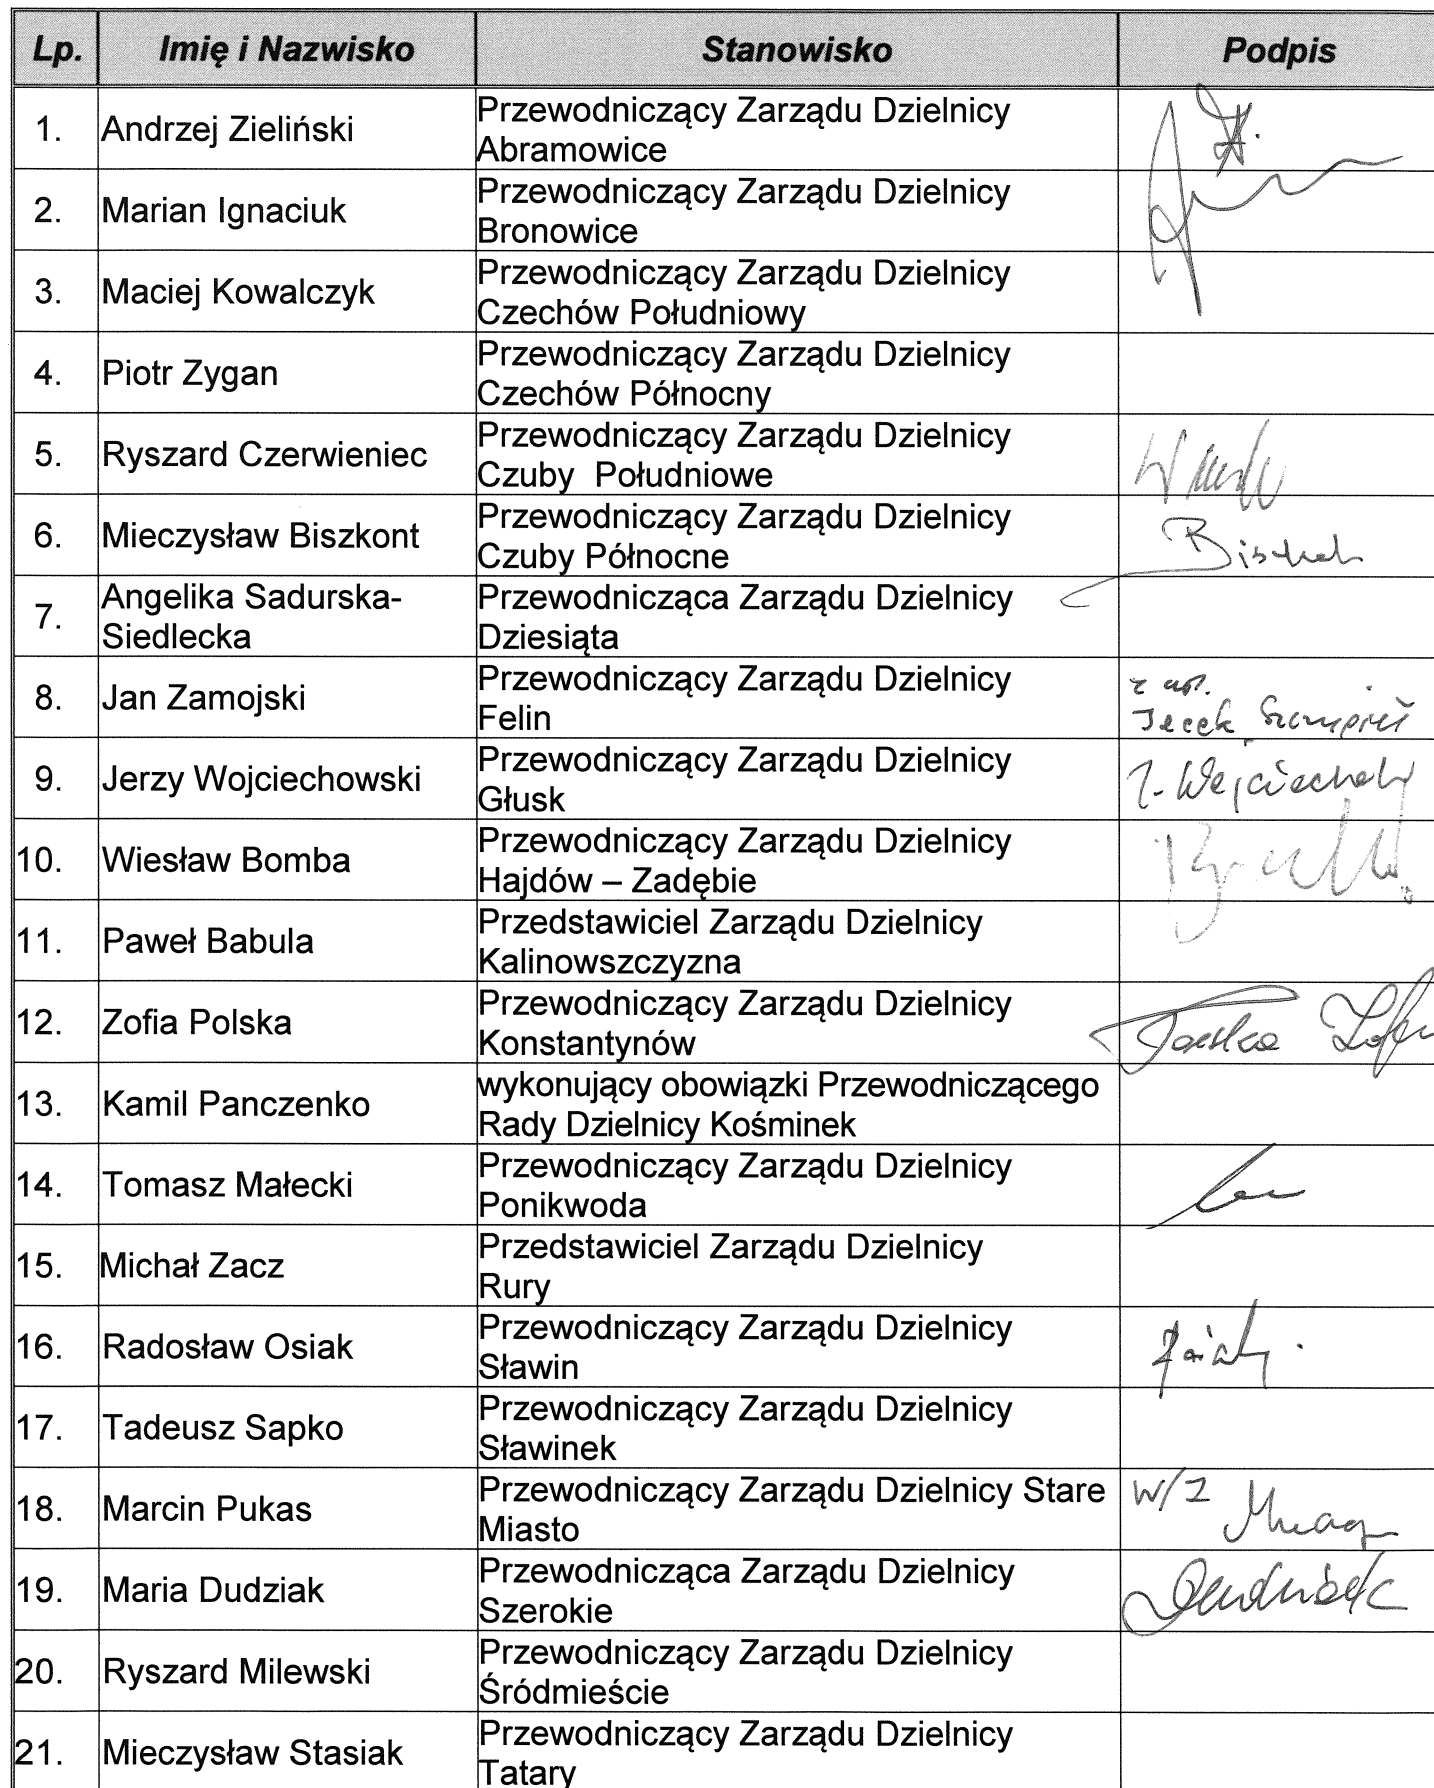 Lp. Imię i Nazwisko Stanowisko Podpis
1. Andrzej Zieliński Przewodniczący Zarządu Dzielnicy
Abramowice
2. Marian Ignaciuk Przewodniczący Zarządu Dzielnicy
Bronowice
3. Maciej Kowalczyk Przewodniczący Zarządu Dzielnicy
Czechów Południowy
4. Piotr Zygan Przewodniczący Zarządu Dzielnicy
Czechów Północny
5. Ryszard Czerwieniec Przewodniczący Zarządu Dzielnicy
Czuby Południowe
6. Mieczysław Biszkont Przewodniczący Zarządu Dzielnicy
Czuby Północne
7. Angelika Sadurska-
Siedlecka Przewodnicząca Zarządu Dzielnicy
Dziesiąta
8. Jan Zamojski Przewodniczący Zarządu Dzielnicy
Felin Jacek
9. Jerzy Wojciechowski Przewodniczący Zarządu Dzielnicy
Głusk
10. Wiesław Bomba Przewodniczący Zarządu Dzielnicy
Hajdów – Zadębie
11. Paweł Babula Przedstawiciel Zarządu Dzielnicy
Kalinowszczyzna
12. Zofia Polska Przewodniczący Zarządu Dzielnicy
Konstantynów
13. Kamil Panczenko wykonujący obowiązki Przewodniczącego
Rady Dzielnicy Kośminek
14. Tomasz Małecki Przewodniczący Zarządu Dzielnicy
Ponikwoda
15. Michał Zacz Przedstawiciel Zarządu Dzielnicy
Rury
16. Radosław Osiak Przewodniczący Zarządu Dzielnicy
Sławin
17. Tadeusz Sapko Przewodniczący Zarządu Dzielnicy
Sławinek
18. Marcin Pukas Przewodniczący Zarządu Dzielnicy Stare
Miasto W/Z
19. Maria Dudziak Przewodnicząca Zarządu Dzielnicy
Szerokie
20. Ryszard Milewski Przewodniczący Zarządu Dzielnicy
Śródmieście
21. Mieczysław Stasiak Przewodniczący Zarządu Dzielnicy
Tatary